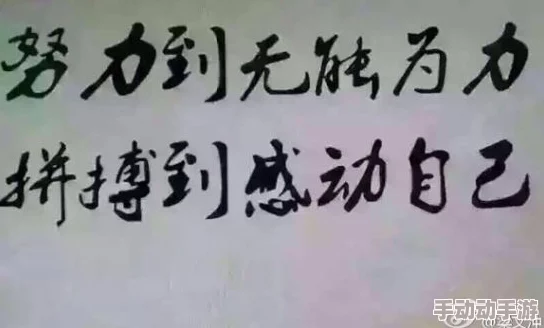 努力到无能为力
拼搏到感动自己
手动动手游